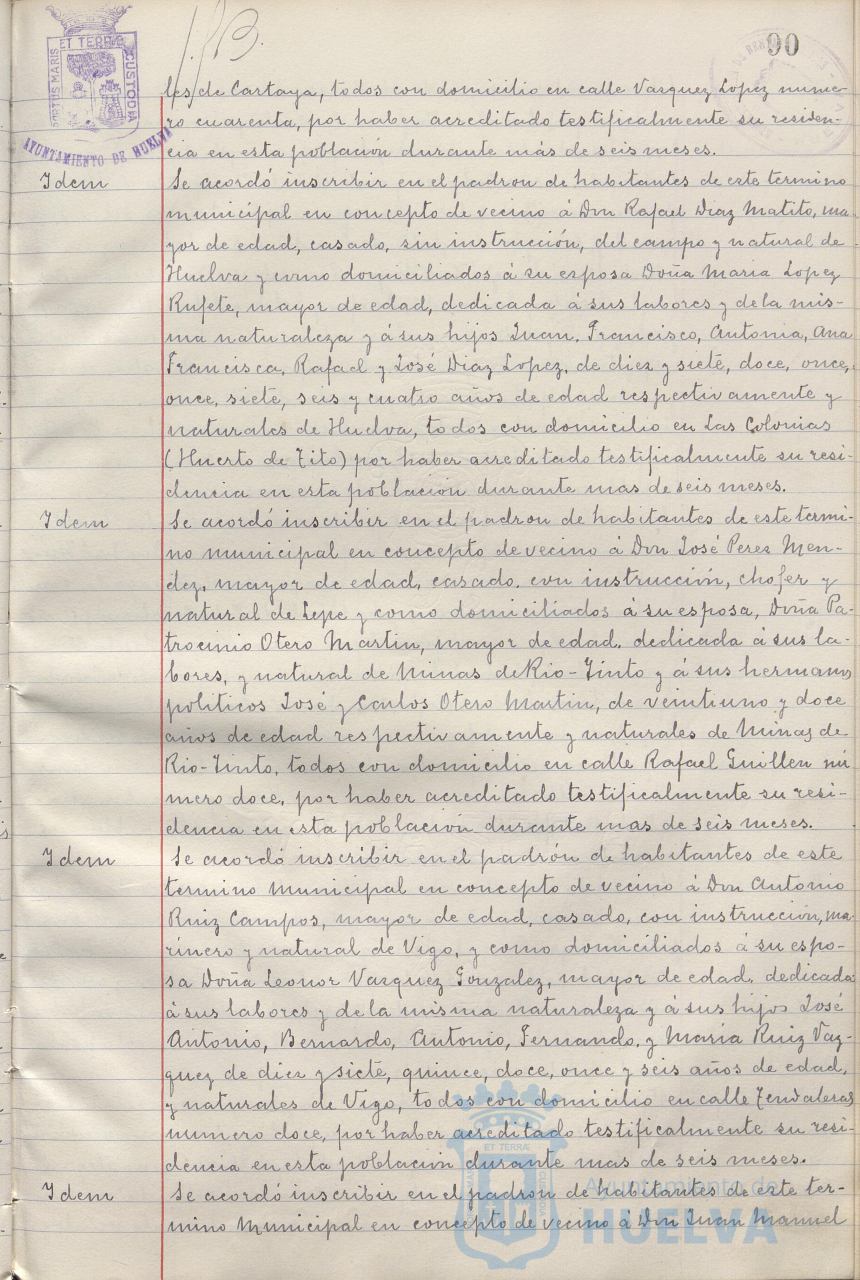 PORTUS MARIS ET TERRÆ CUSTODIA
AYUNTAMIENTO DE HUELVA
90
les de Cartaya, todos con domicilio en calle Vasquez Lopez nume-
ro cuarenta, por haber acreditado testificalmente su residen-
cia en esta población durante más de seis meses.
Idem
Se acordó inscribir en el padron de habitantes de este termino
municipal en concepto de vecino á Don Rafael Diaz Matito, ma-
yor de edad, casado, sin instrucción, del campo y natural de
Huelva y como domiciliados á su esposa Doña Maria Lopez
Rufete, mayor de edad, dedicada á sus labores y de la mis-
ma naturaleza y á sus hijos Juan, Francisco, Antonia, Ana
Francisca, Rafael y José Diaz Lopez, de diez y siete, doce, once,
once, siete, seis y cuatro años de edad respectivamente y
naturales de Huelva, todos con domicilio en Las Colonias
(Huerto de Tito) por haber acreditado testificalmente su resi-
dencia en esta población durante mas de seis meses.
Idem
Se acordó inscribir en el padron de habitantes de este termi-
no municipal en concepto de vecino á Don José Perez Men-
dez, mayor de edad, casado, con instrucción, chofer y
natural de Lepe y como domiciliados á su esposa, Doña Pa-
trocinio Otero Martin, mayor de edad, dedicada á sus la-
bores, y natural de Minas de Rio-Tinto y á sus hermanos
politicos José y Carlos Otero Martin, de veintiuno y doce
años de edad respectivamente y naturales de Minas de
Rio-Tinto, todos con domicilio en calle Rafael Guillen nú
mero doce, por haber acreditado testificalmente su resi-
dencia en esta población durante mas de seis meses.
Idem
Se acordó inscribir en el padrón de habitantes de este
termino municipal en concepto de vecino á Don Antonio
Ruiz Campos, mayor de edad, casado, con instrucción, ma-
rinero y natural de Vigo, y como domiciliados á su espo-
sa Doña Leonor Vazquez Gonzalez, mayor de edad, dedicada
á sus labores y de la misma naturaleza y á sus hijos José
Antonio, Bernardo, Antonio, Fernando, y Maria Ruiz Vaz-
quez de diez y siete, quince, doce, once y seis años de edad,
y naturales de Vigo, todos con domicilio en calle Tendaleras
numero doce, por haber acreditado testificalmente su resi-
dencia en esta población durante mas de seis meses.
Idem
Se acordó inscribir en el padron de habitantes de este ter-
mino municipal en concepto de vecino á Don Juan Manuel
Ayuntamiento de
HUELVA